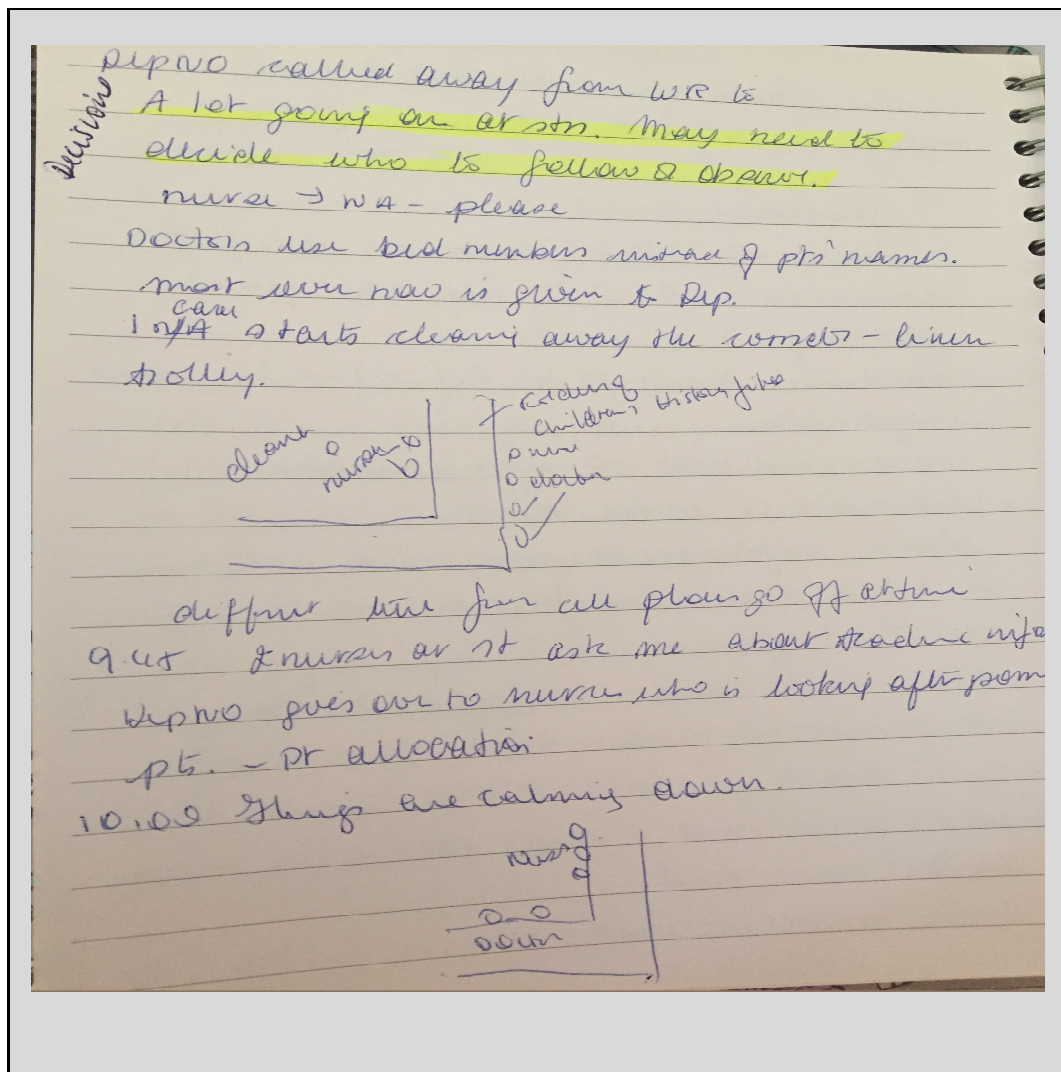 Decision
Dep NO called away from WR to
A lot going on at stn. May need to
decide who to follow & observe.
nurse → NA - please
Doctors use bed numbers instead of pts' names.
most over now is given to Dep.
care
1 n/A starts cleaning away the corridor - linen
trolley.
children's History files
cleaner
nurses
nurse
doctor
different line from all phones go off at time
9.45 2 nurses at st ask me about info
Dep NO goes over to nurse who is looking after
pts. - Pt allocation.
10.00 Things are calming down.
nurse
Doctor